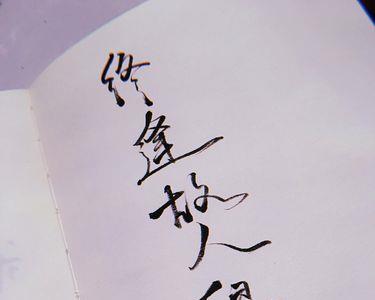 终逢故人